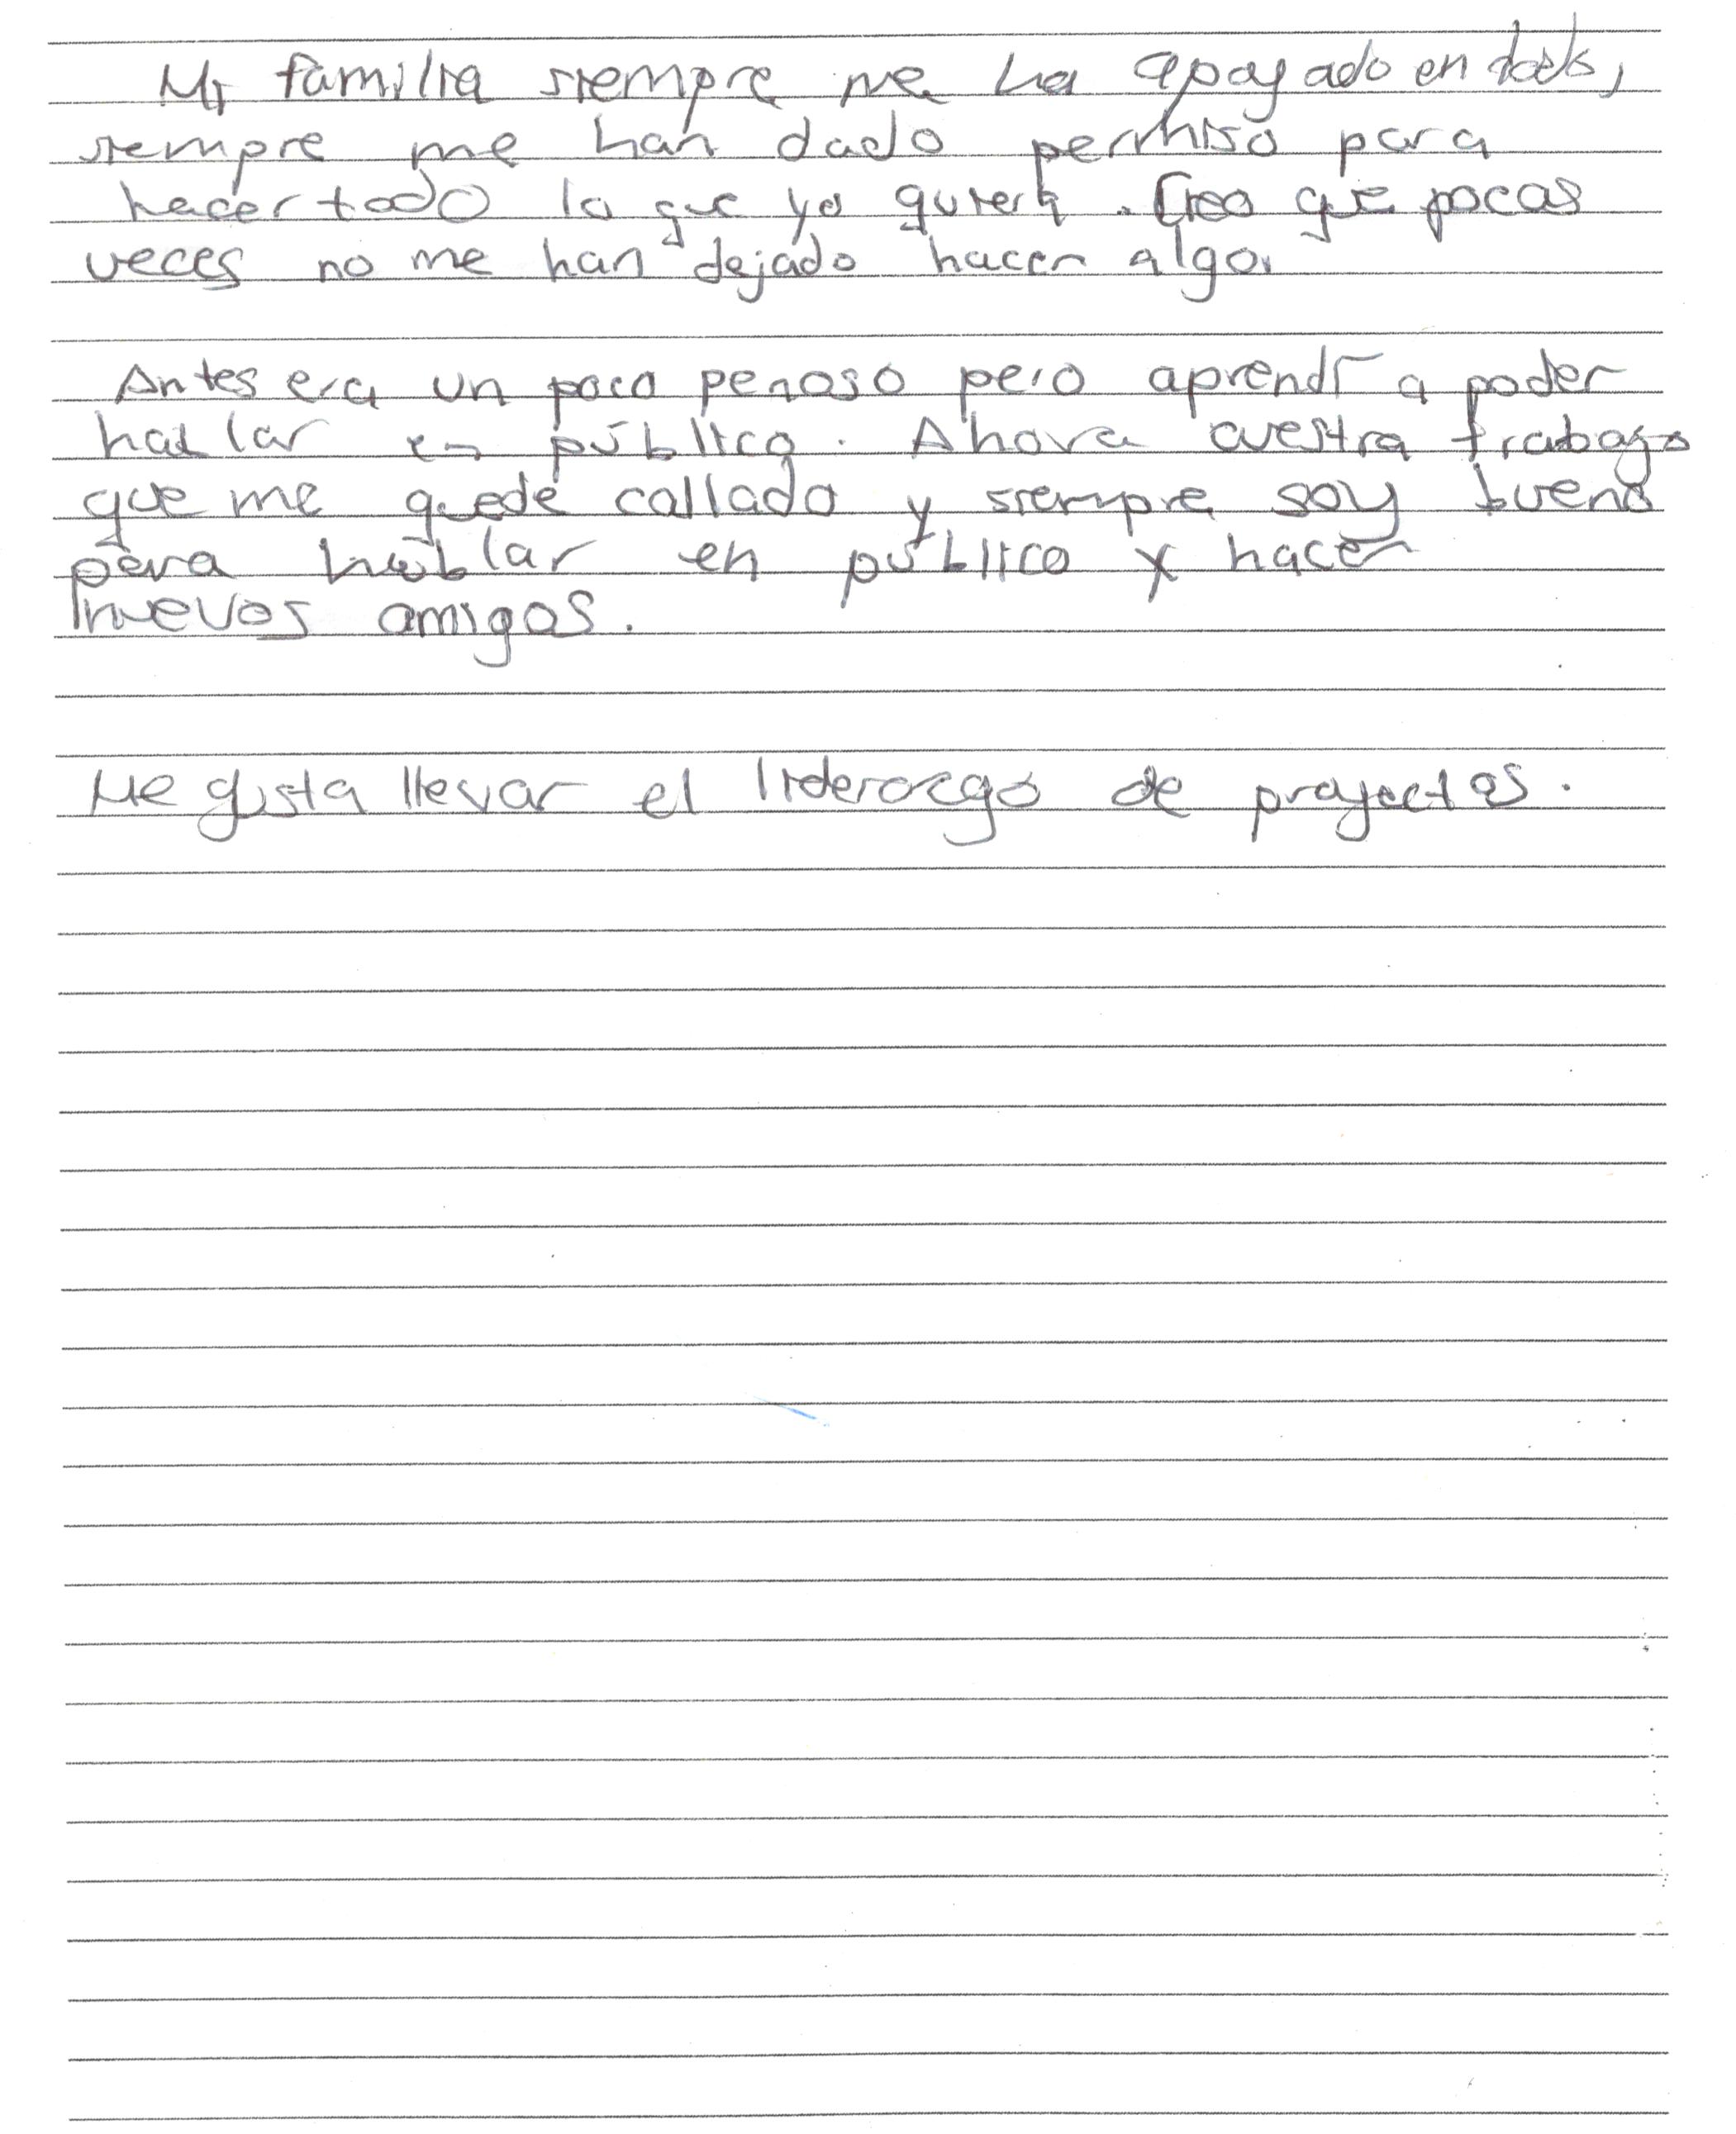 Mi familia siempre me ha apoyado en todo,
siempre me han dado permiso para
hacer todo lo que yo quiera. Creo que pocas
veces no me han dejado hacer algo.
Antes era un poco penoso pero aprendí a poder
hablar en público. Ahora cuestra trabajo
que me quede callado y siempre soy bueno
para hablar en público y hacer
nuevos amigos.
Me gusta llevar el liderazgo de proyectos.